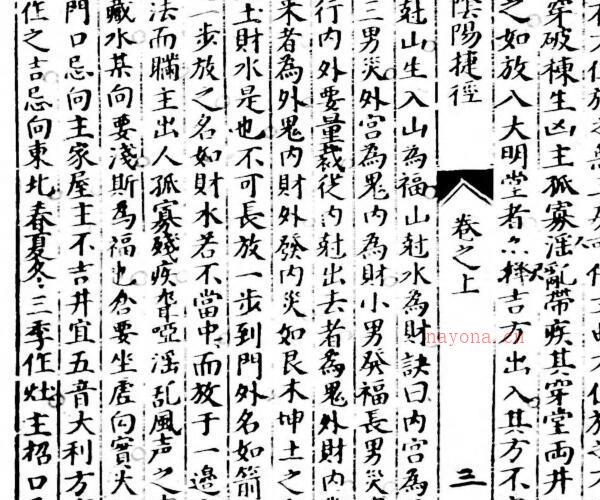 穿破棟生凶主孤寡淫亂帶疾其穿堂两井
之如放八大明堂者亦擇吉方出入其方不
陰陽捷徑 卷之上 三
射山生入山為福山射水為財訣曰内宫為
三男災外宫為鬼内為財小男發福長男災
行内外要量裁從内射出去者為鬼外財内
来者為外鬼内財外發内災如艮木坤土之
土財水是也不可長放一步到門外名如箭
一步放之名如財水若不當中而放于一邊
法而瞞主出人孤寡殘疾聾啞淫乱風声之
藏水其向要淺斯為福也倉要坐虚向實灾
門口忌向主家屋主不吉井宜五音大利方
作之吉忌向東北春夏冬三季作灶主招口
nayona.cn